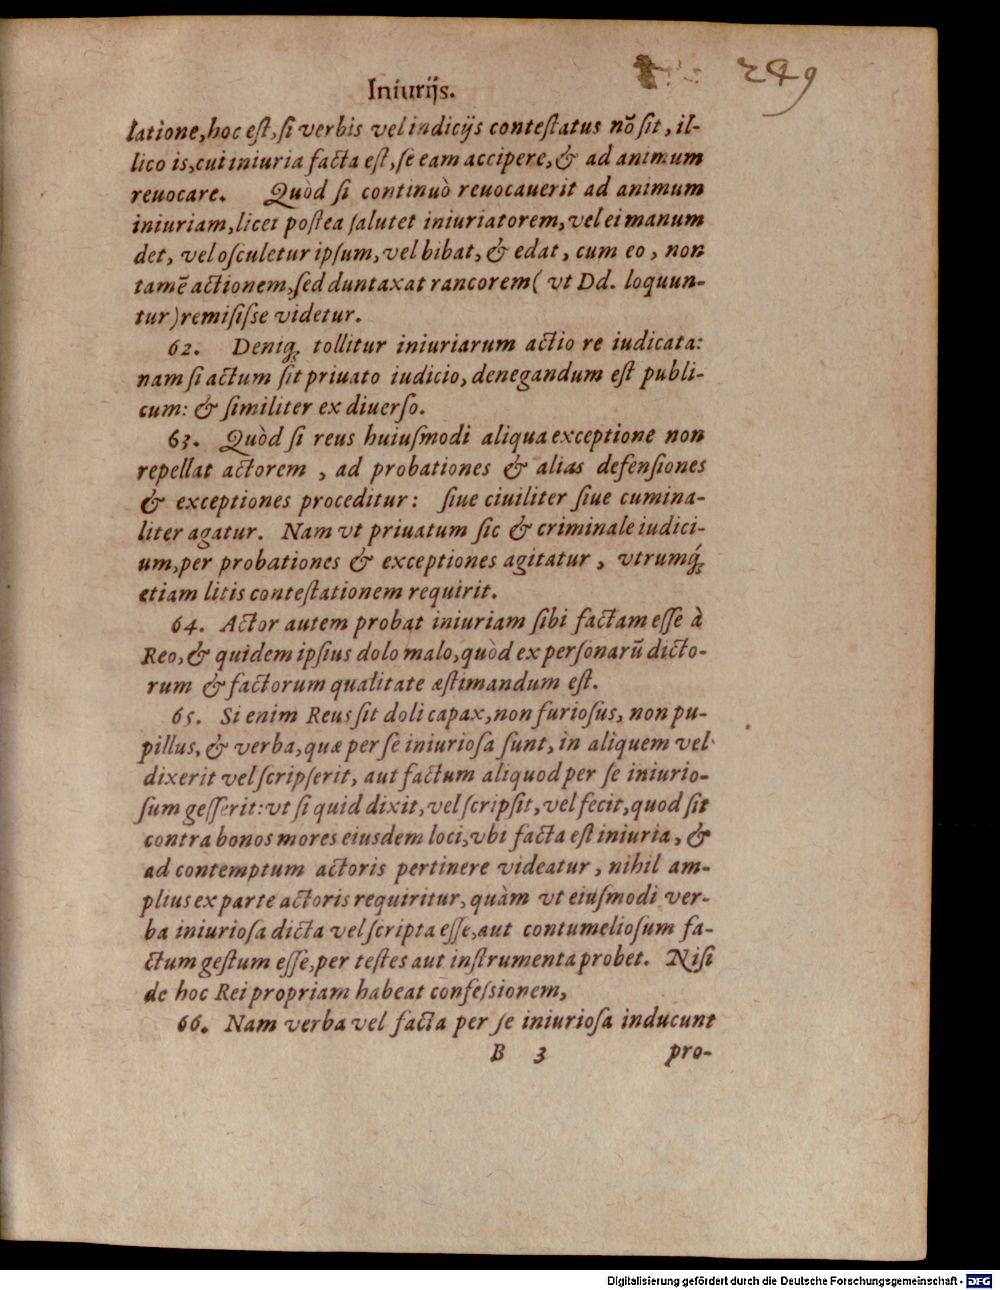 249
Iniurijs.
latione, hoc est, si verbis vel indicijs contestatus nō sit, il-
lico is, cui iniuria facta est, se eam accipere, & ad animum
reuocare. Quòd si continuò reuocauerit ad animum
iniuriam, licet postea salutet iniuriatorem, vel ei manum
det, vel osculetur ipsum, vel bibat, & edat, cum eo, non
tamē actionem, sed duntaxat rancorem (vt Dd. loquun-
tur) remisisse videtur.
62. Deniq; tollitur iniuriarum actio re iudicata:
nam si actum sit priuato iudicio, denegandum est publi-
cum: & similiter ex diuerso.
63. Quòd si reus huiusmodi aliqua exceptione non
repellat actorem, ad probationes & alias defensiones
& exceptiones proceditur: siue ciuiliter siue cumina-
liter agatur. Nam vt priuatum sic & criminale iudici-
um, per probationes & exceptiones agitatur, vtrumq́;
etiam litis contestationem requirit.
64. Actor autem probat iniuriam sibi factam esse à
Reo, & quidem ipsius dolo malo, quòd ex personarū dicto-
rum & factorum qualitate æstimandum est.
65. Si enim Reus sit doli capax, non furiosus, non pu-
pillus, & verba, quæ per se iniuriosa sunt, in aliquem vel
dixerit vel scripserit, aut factum aliquod per se iniurio-
sum gesserit: vt si quid dixit, vel scripsit, vel fecit, quod sit
contra bonos mores eiusdem loci, vbi facta est iniuria, &
ad contemptum actoris pertinere videatur, nihil am-
plius ex parte actoris requiritur, quàm vt eiusmodi ver-
ba iniuriosa dicta vel scripta esse, aut contumeliosum fa-
ctum gestum esse, per testes aut instrumenta probet. Nisi
de hoc Rei propriam habeat confessionem,
66. Nam verba vel facta per se iniuriosa inducunt
B 3 pro-
Digitalisierung gefördert durch die Deutsche Forschungsgemeinschaft - DFG